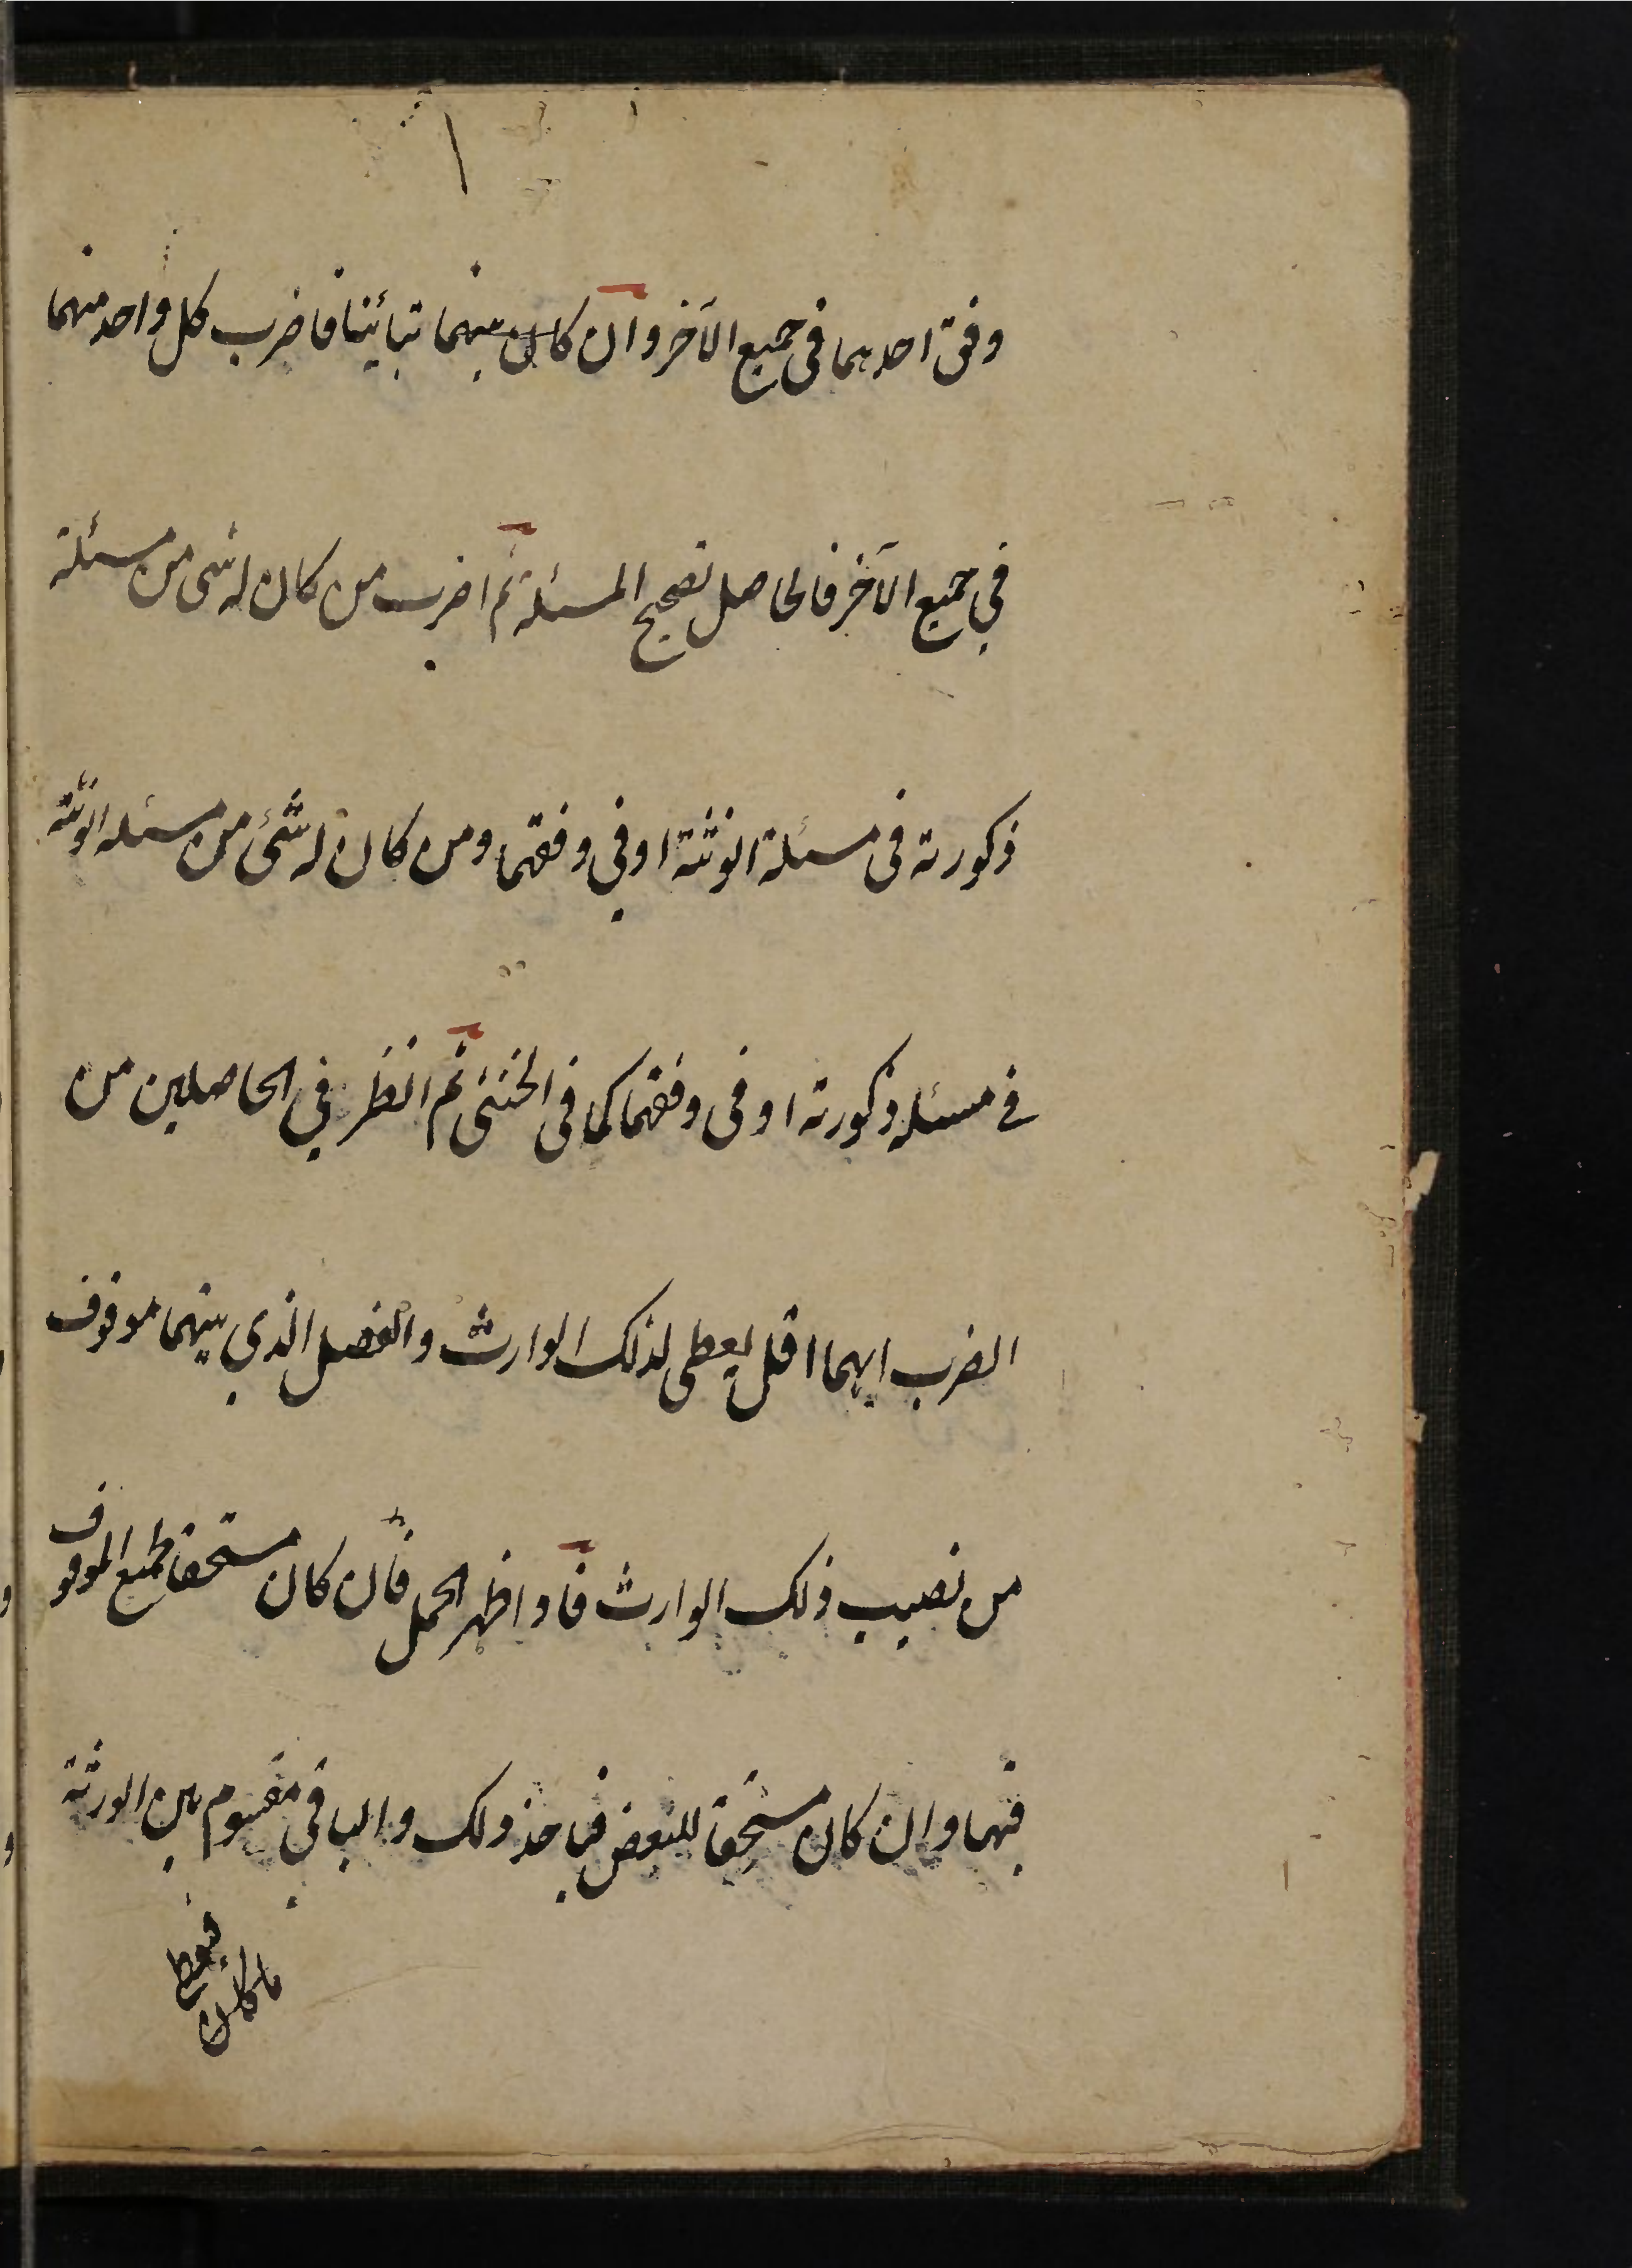 وفق احدهما فى جميع الآخر وان كان بينهما تبائينا فاضرب كل واحد منهما
في جميع الآخر فالحاصل تصحيح المسئلة ثم اضرب من كان له شى من مسئلة
ذكورته فى مسئلة انوثته او في وفقهما ومن كان له شئ من مسئله انوثته
فے مسئله ذكورته او فى وفقهما كما فى الخنثى ثم انظر في الحاصلين من
الضرب ايهما اقل يعطى لذلك الوارث والفضل الذي بينهما موقوف
من نصيب ذلك الوارث فاذا ظهر الحمل فان كان مستحقا لجميع الموقوف
فبهما وان كان مستحقا للبعض فياخذ ذلك والباقي مقسوم بين الورثة
فيعطے
ما كان